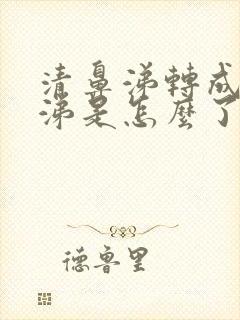 清鼻涕轉成
涕是怎麼了
德魯里